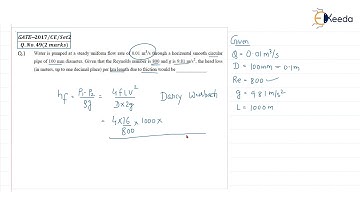 GATE-2017/CE/Set2
Q.No.49(2 marks)
Ekeeda
Q.) Water is pumped at a steady uniform flow rate of 0.01 m³/s through a horizontal smooth circular
pipe of 100 mm diameter. Given that the Reynolds number is 800 and g is 9.81 m/s², the head loss
(in meters, up to one decimal place) per km length due to friction would be
hf = P1-P2 / ρg = 4flv² / D×2g Darcy Weisbach
= 4×16 / 800 × 1000×
Given
Q = 0.01 m³/s
D = 100mm = 0.1m
Re = 800
g = 9.81 m/s²
L = 1000m